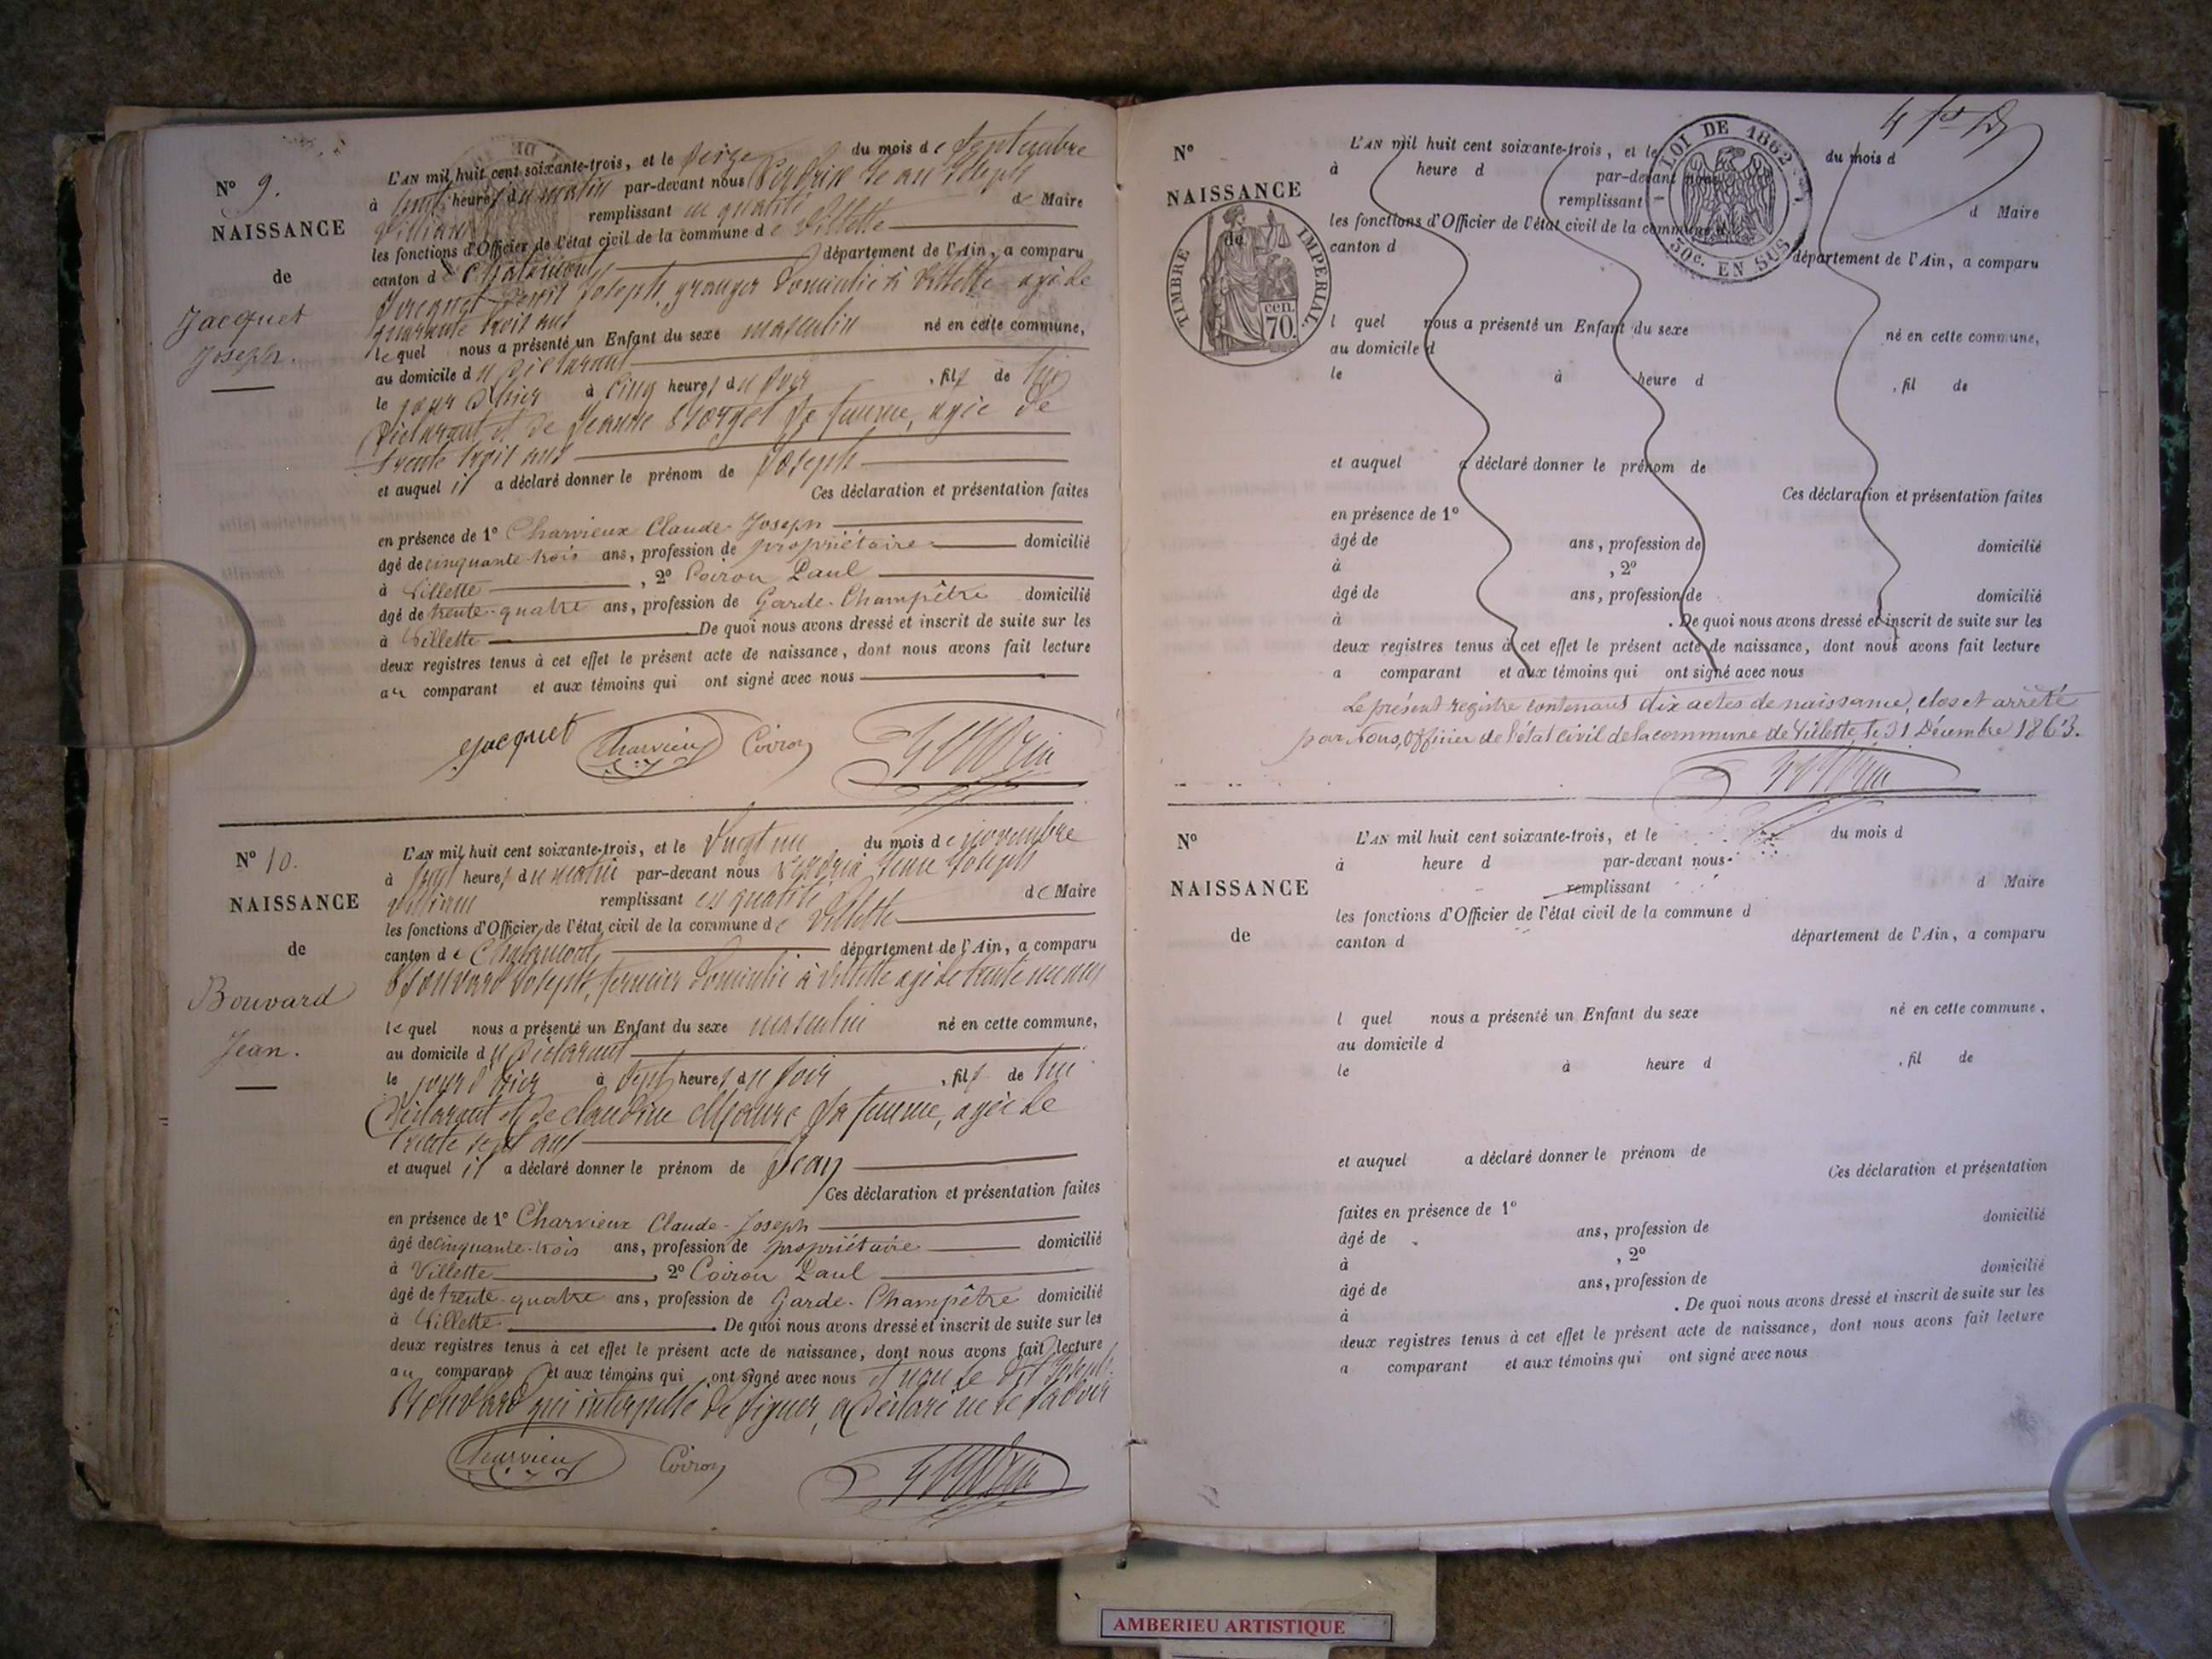 N° 9.
NAISSANCE
de
Jacquet
Joseph.
L'AN mil huit cent soixante-trois, et le seize du mois de septembre
à huit heures du matin par-devant nous
remplissant en qualité de Maire
les fonctions d'Officier de l'état civil de la commune de Villette
canton de Chalamont département de l'Ain, a comparu
Joseph, granger domicilié à Villette agé de
quarante trois ans
lequel nous a présenté un Enfant du sexe masculin né en cette commune,
au domicile du déclarant
le jour d'hier à cinq heures du soir, fils de lui
déclarant et de Jeanne sa femme, agée de
trente trois ans
et auquel il a déclaré donner le prénom de Joseph
Ces déclaration et présentation faites
en présence de 1° Charvieux Claude-Joseph
âgé de cinquante-trois ans, profession de propriétaire domicilié
à Villette, 2° Coiron Paul
âgé de trente-quatre ans, profession de Garde-Champêtre domicilié
à Villette De quoi nous avons dressé et inscrit de suite sur les
deux registres tenus à cet effet le présent acte de naissance, dont nous avons fait lecture
au comparant et aux témoins qui ont signé avec nous
Jacquet Charvieux Coiron
N° 10.
NAISSANCE
de
Bouvard
Jean.
L'AN mil huit cent soixante-trois, et le vingt un du mois de novembre
à heures du matin par-devant nous Joseph
remplissant en qualité de Maire
les fonctions d'Officier de l'état civil de la commune de Villette
canton de Chalamont département de l'Ain, a comparu
Bouvard Joseph, fermier domicilié à Villette agé de trente un ans
lequel nous a présenté un Enfant du sexe masculin né en cette commune,
au domicile du déclarant
le jour d'hier à sept heures du soir, fils de lui
déclarant et de claudine sa femme, agée de
trente sept ans
et auquel il a déclaré donner le prénom de Jean
Ces déclaration et présentation faites
en présence de 1° Charvieux Claude-Joseph
âgé de cinquante-trois ans, profession de propriétaire domicilié
à Villette, 2° Coiron Paul
âgé de trente-quatre ans, profession de Garde-Champêtre domicilié
à Villette. De quoi nous avons dressé et inscrit de suite sur les
deux registres tenus à cet effet le présent acte de naissance, dont nous avons fait lecture
au comparant et aux témoins qui ont signé avec nous et non le dit Joseph
Bouvard qui interpellé de signer, a déclaré ne le savoir
Charvieux Coiron
N°
NAISSANCE
de
TIMBRE IMPERIAL
cen.
70.
LOI DE 1862
50c. EN SUS
L'AN mil huit cent soixante-trois, et le du mois d
à heure d par-devant nous
remplissant d Maire
les fonctions d'Officier de l'état civil de la commune d
canton d département de l'Ain, a comparu
l quel nous a présenté un Enfant du sexe né en cette commune,
au domicile d
le à heure d , fil de
et auquel a déclaré donner le prénom de
Ces déclaration et présentation faites
en présence de 1°
âgé de ans, profession de domicilié
à , 2°
âgé de ans, profession de domicilié
à . De quoi nous avons dressé et inscrit de suite sur les
deux registres tenus à cet effet le présent acte de naissance, dont nous avons fait lecture
a comparant et aux témoins qui ont signé avec nous
Le présent registre contenant dix actes de naissance, clos et arrêté
par Nous, Officier de l'état civil de la commune de Villette, le 31 Décembre 1863.
N°
NAISSANCE
de
L'AN mil huit cent soixante-trois, et le du mois d
à heure d par-devant nous
remplissant d Maire
les fonctions d'Officier de l'état civil de la commune d
canton d département de l'Ain, a comparu
l quel nous a présenté un Enfant du sexe né en cette commune,
au domicile d
le à heure d , fil de
et auquel a déclaré donner le prénom de
Ces déclaration et présentation
faites en présence de 1° domicilié
âgé de ans, profession de
à , 2°
âgé de ans, profession de domicilié
à . De quoi nous avons dressé et inscrit de suite sur les
deux registres tenus à cet effet le présent acte de naissance, dont nous avons fait lecture
a comparant et aux témoins qui ont signé avec nous
AMBERIEU ARTISTIQUE